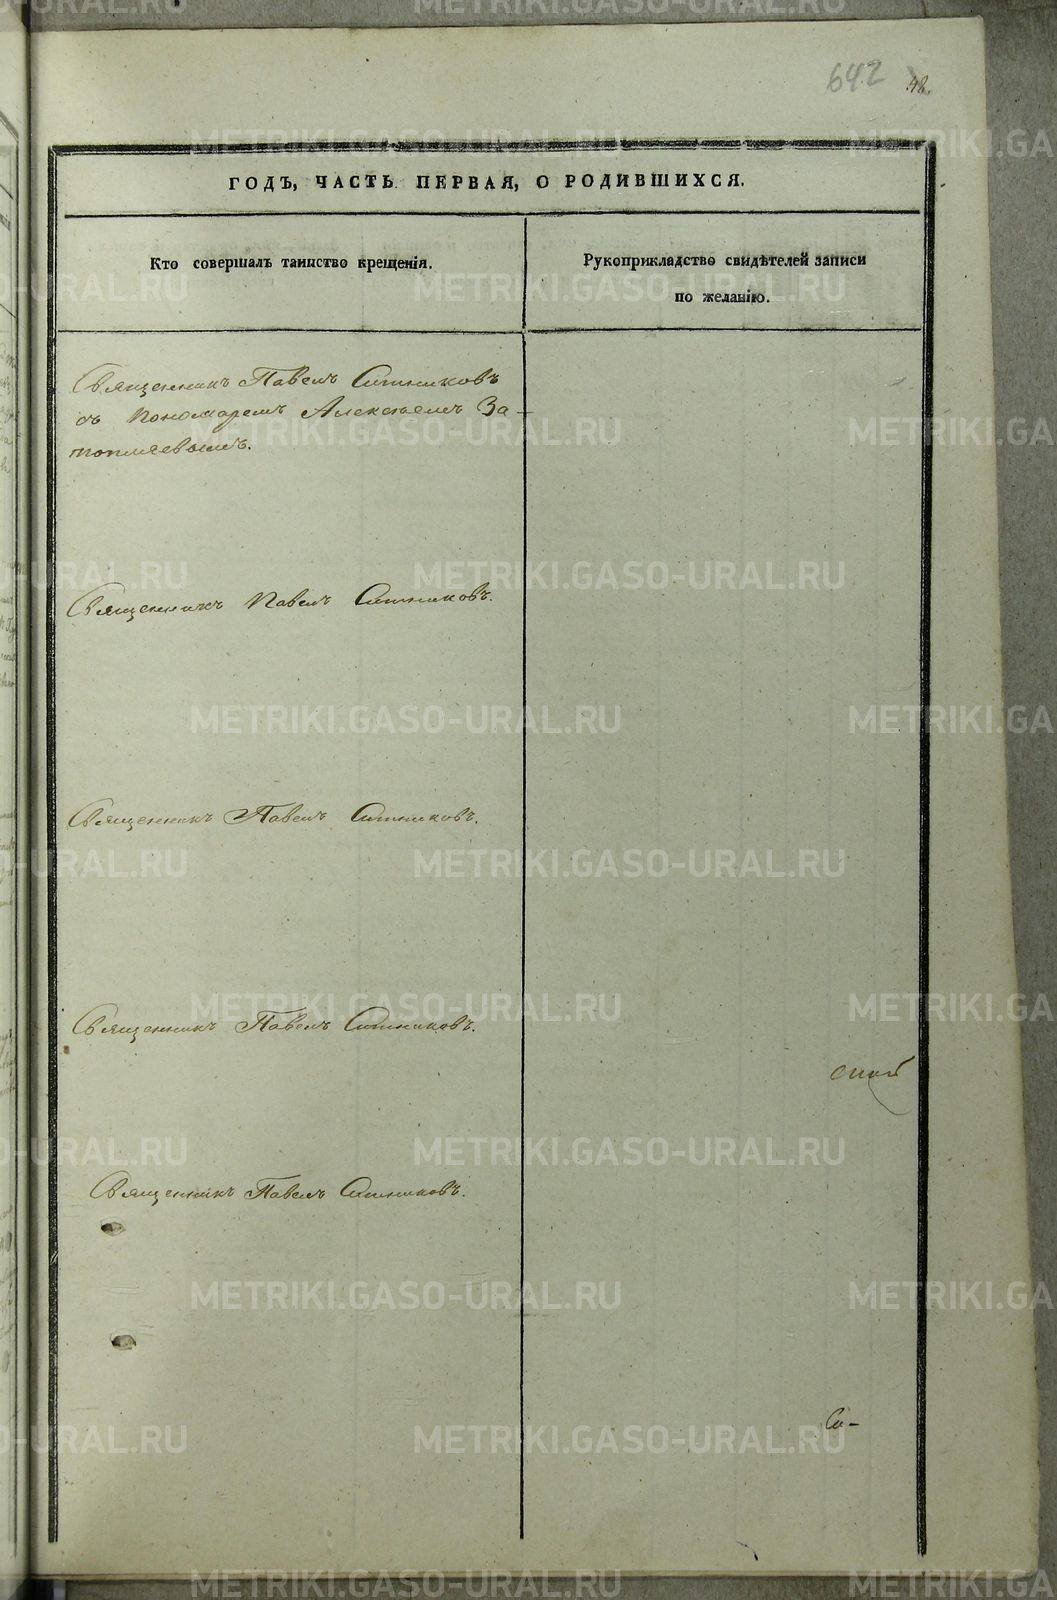 642 48.
ГОДЪ, ЧАСТЬ ПЕРВАЯ, О РОДИВШИХСЯ.
Кто совершалъ таинство крещенія.
Рукоприкладство свидѣтелей записи
по желанію.
Священникъ Павелъ Ситниковъ
съ Пономаремъ Алексѣемъ За-
топляевымъ.
Священникъ Павелъ Ситниковъ.
Священникъ Павелъ Ситниковъ.
Священникъ Павелъ Ситниковъ.
Священникъ Павелъ Ситниковъ.
METRIKI.GASO-URAL.RU